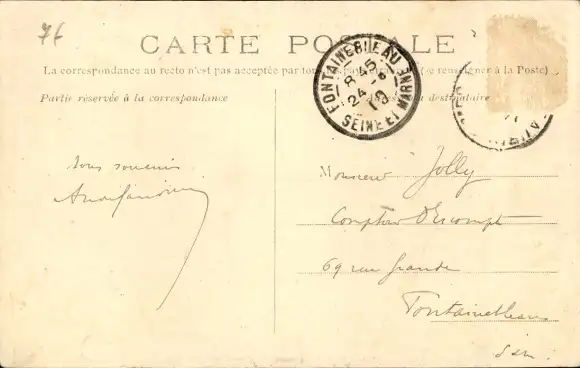 76
CARTE POSTALE
La correspondance au recto n'est pas acceptée par tous pays (se renseigner à la Poste)
Partie réservée à la correspondance
destinataire
FONTAINEBLEAU
8 45
24
10
SEINE ET MARNE
Monsieur Jolly
Comptoir d'Escompt
69 rue Grande
Fontainebleau
bons souvenirs